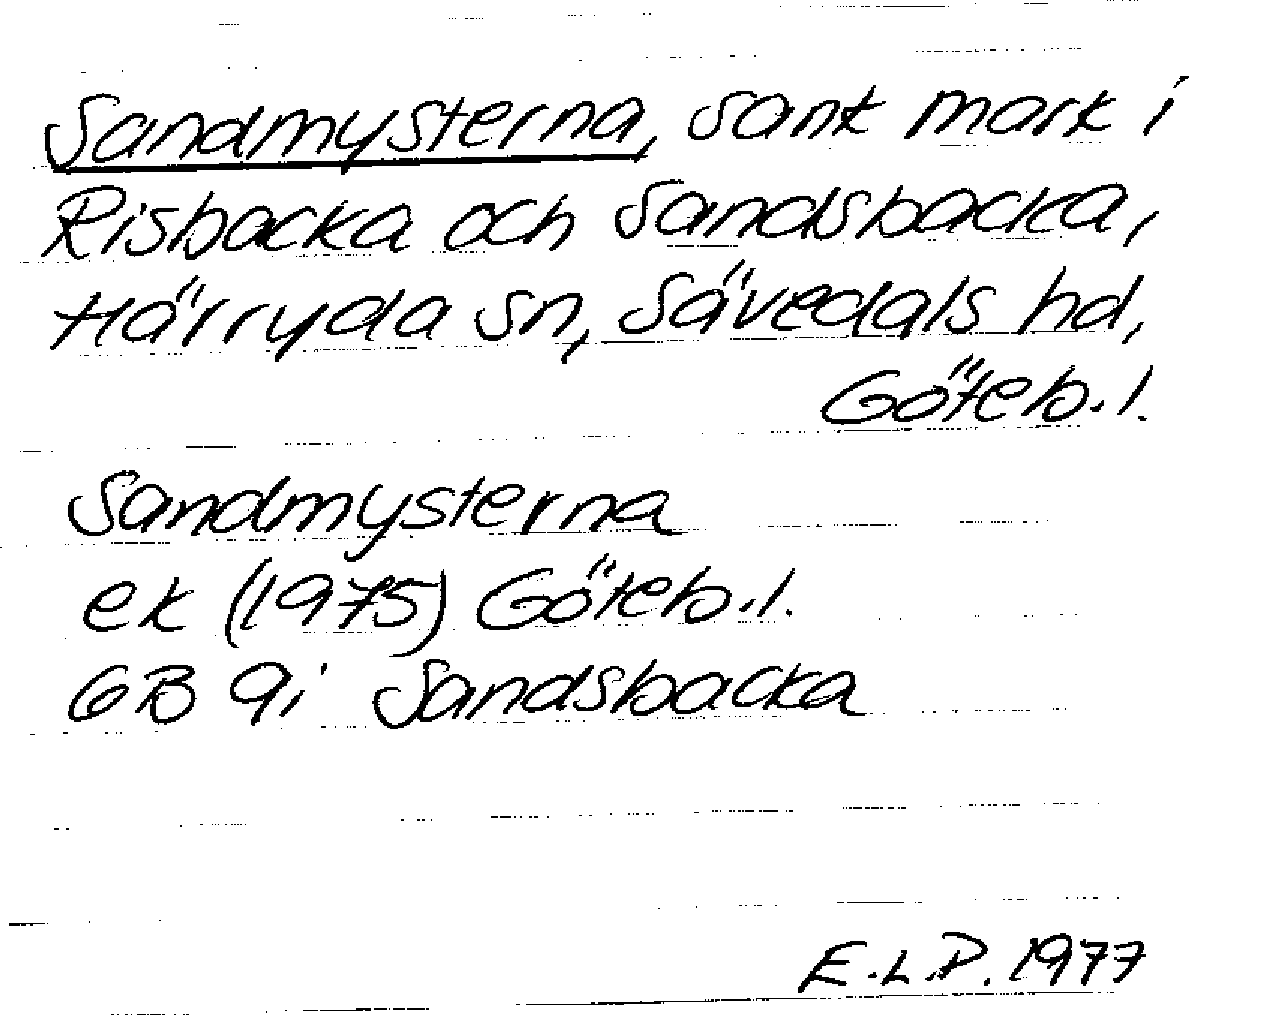 Sandmysterna, sank mark i
Risbacka och Sandsbacka,
Härryda sn, Sävedals hd,
Göteb.l.
Sandmysterna
ek (1975) Göteb.l.
GB 9i Sandsbacka
E.L.P. 1977